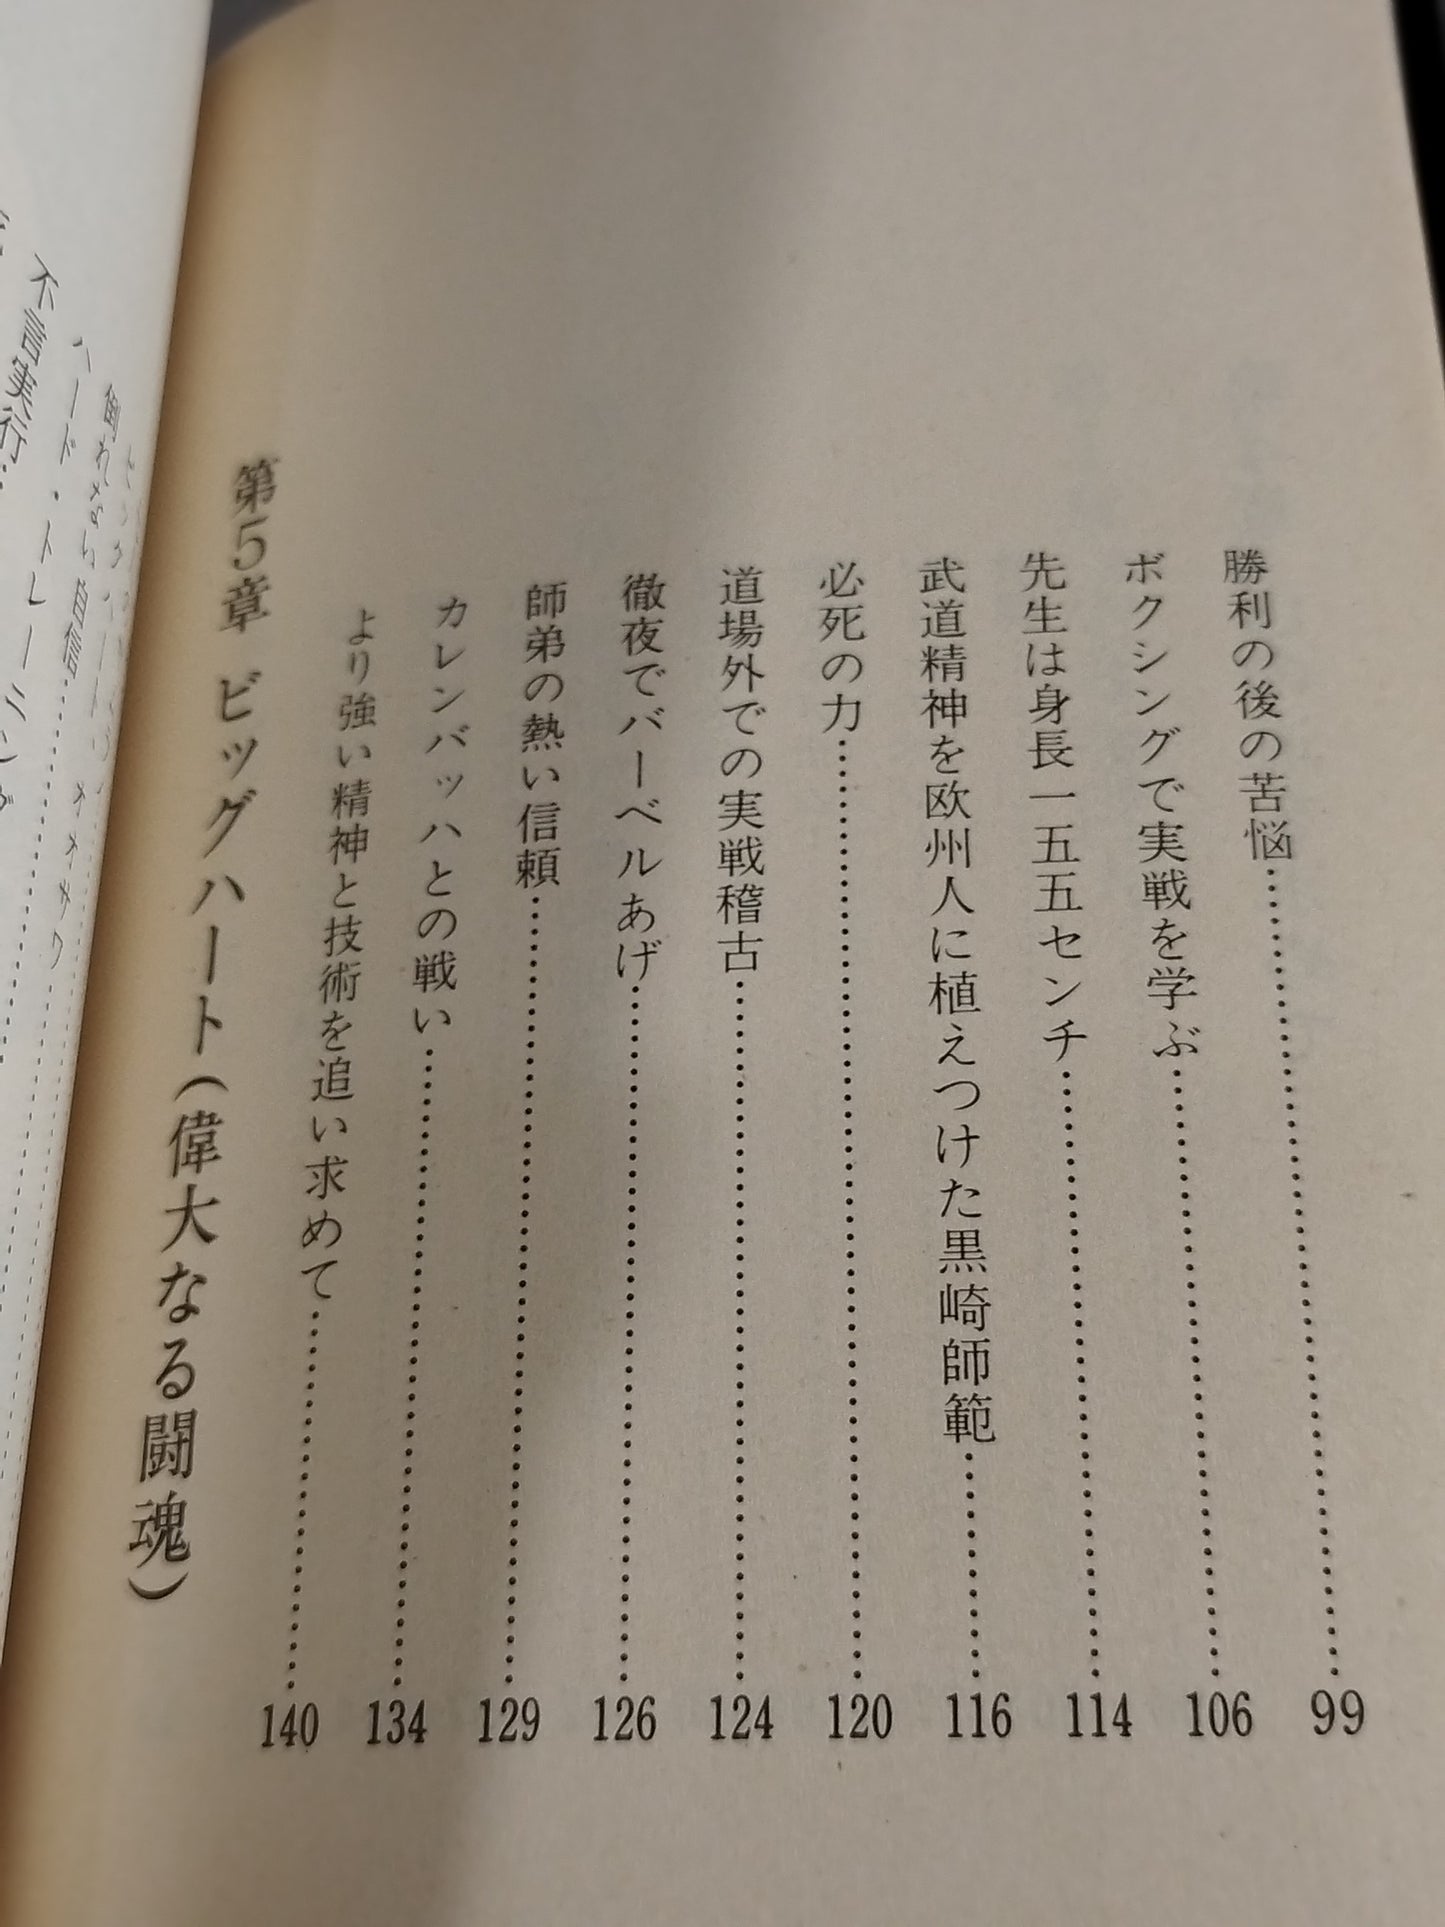 勝利の後の苦悩……………99
ボクシングで実戦を学ぶ……………106
先生は身長一五五センチ……………114
武道精神を欧州人に植えつけた黒崎師範……………116
必死の力……………120
道場外での実戦稽古……………124
徹夜でバーベルあげ……………126
師弟の熱い信頼……………129
カレンバッハとの戦い……………134
より強い精神と技術を追い求めて……………140
第5章 ビッグハート(偉大なる闘魂)
倒れない自信……………
ハード・トレーニング
不言実行……